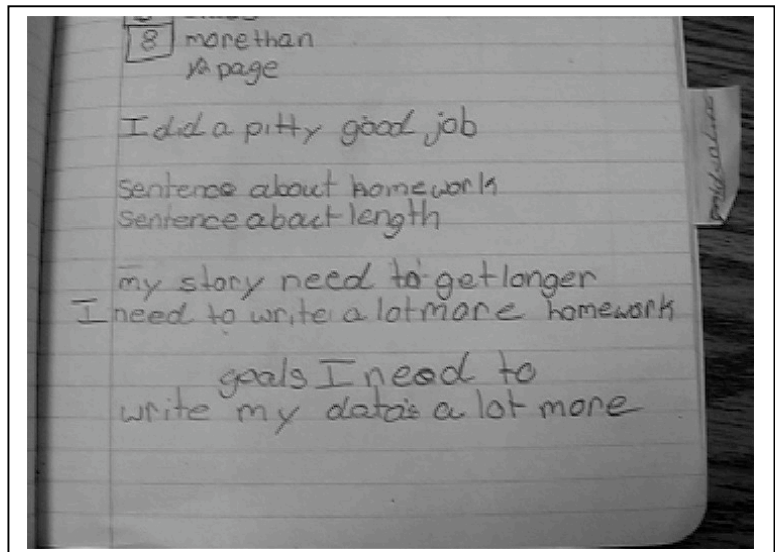 8 more than
½ page
I did a pitty good job
sentence about homework
sentence about length
my story need to get longer
I need to write a lot more homework
goals I need to
write my data's a lot more